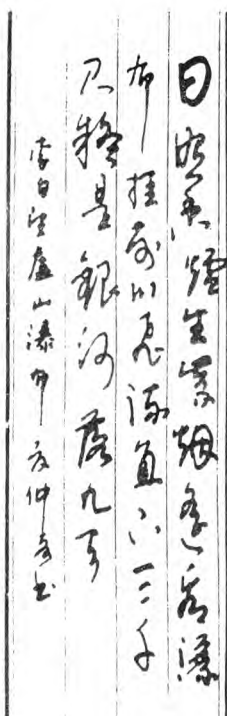 日照香爐生紫烟遥看瀑
布挂前川飛流直下三千
尺疑是銀河落九天
李白望廬山瀑布 仲 书